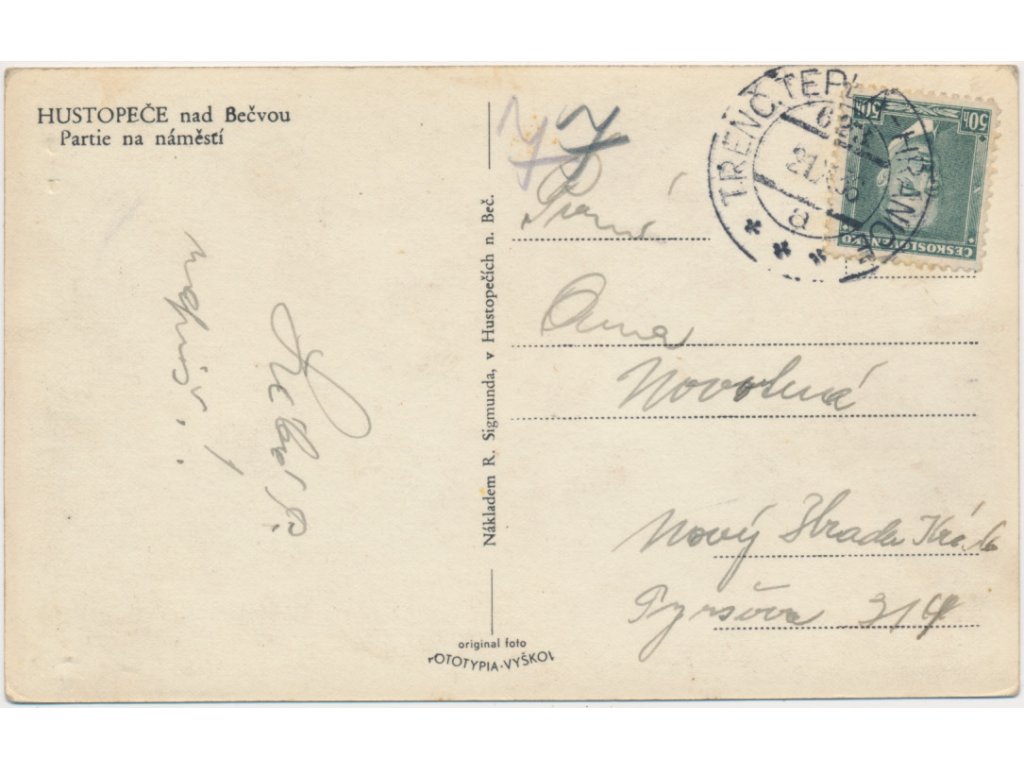 HUSTOPEČE nad Bečvou
Partie na náměstí
napiš!
Nákladem R. Sigmunda, v Hustopečích n. Beč.
original foto
FOTOTYPIA-VYŠKOV
77
TRENČ.TEPLÁ HRANICE
a
50h 50h
ČESKOSLOVENSKO
Paní
Anna
Novotná
Nový Hradec Král.
Tyršova 314